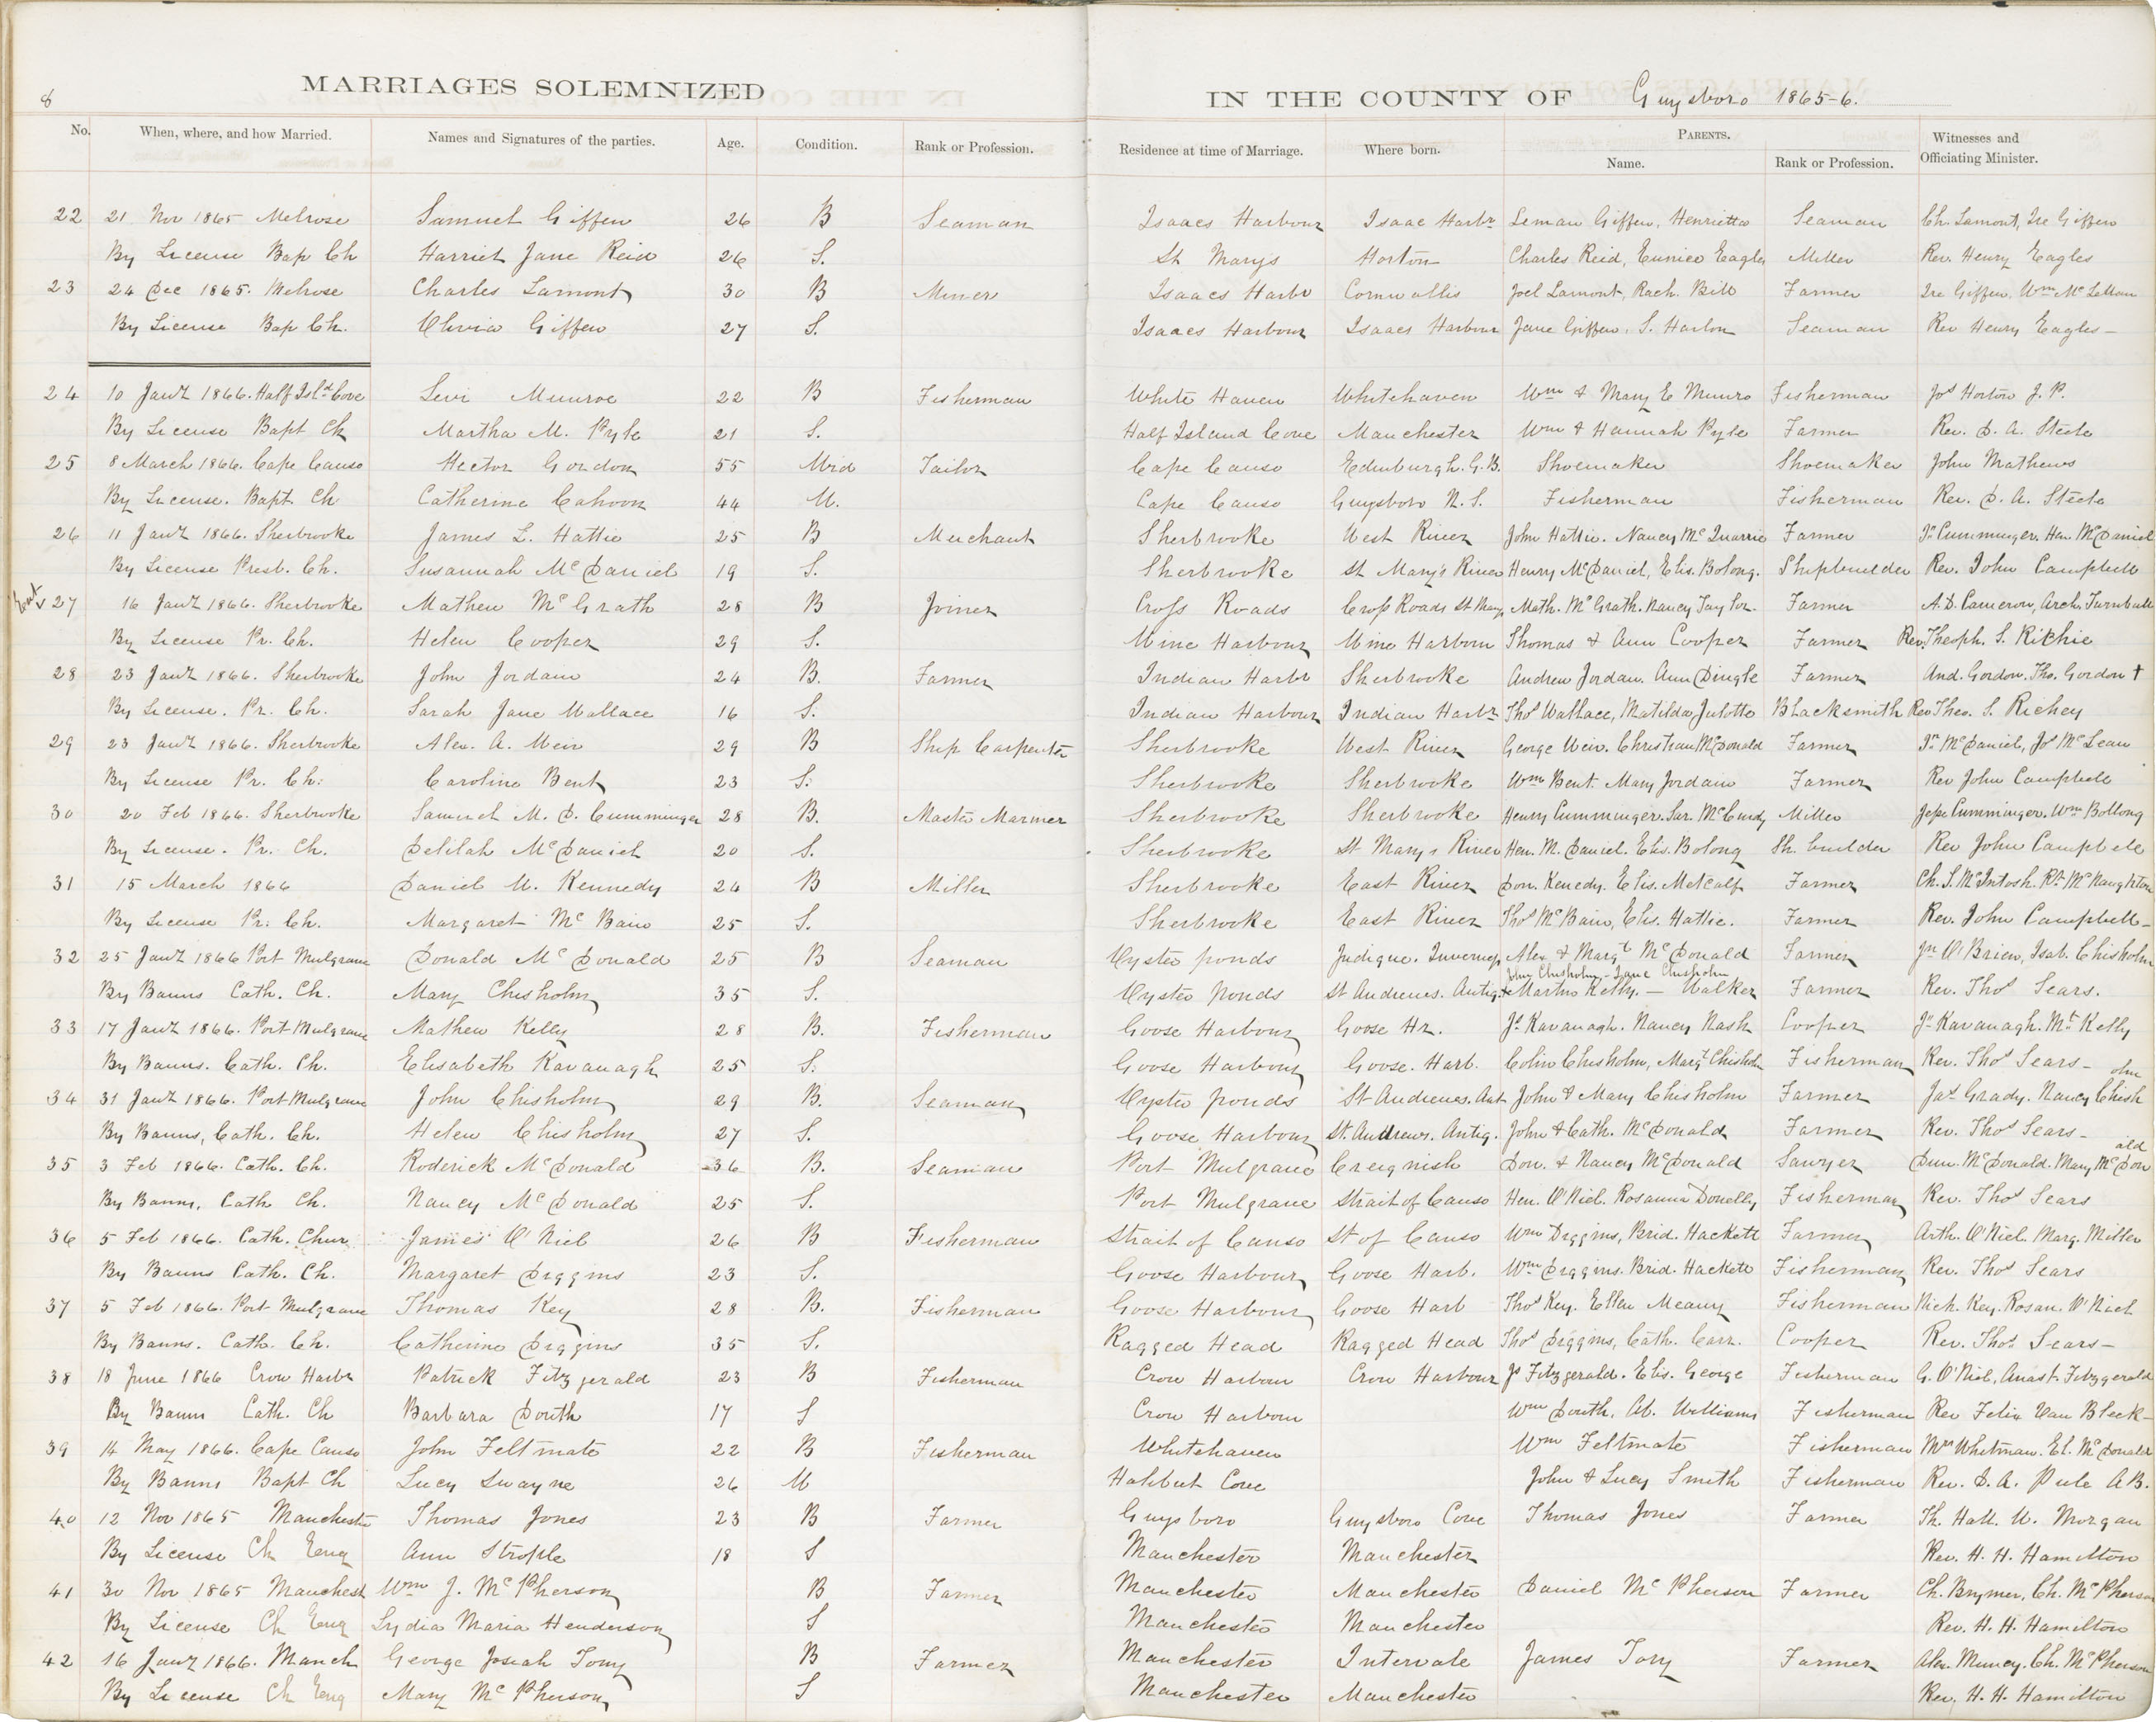 8
MARRIAGES SOLEMNIZED IN THE COUNTY OF Guysboro 1865-6.
No. When, where, and how Married. Names and Signatures of the parties. Age. Condition. Rank or Profession. Residence at time of Marriage. Where born. PARENTS. Name. Rank or Profession. Witnesses and Officiating Minister.
22 21 Nov 1865 Melrose Samuel Giffen 26 B Seaman Isaacs Harbour Isaac Harbr Leman Giffen, Henrietta Seaman Ch. Lamont, Ire Giffen
By License Bap Ch Harriet Jane Reid 26 S. St Marys Horton Charles Reid, Eunice Eagles Miller Rev. Henry Eagles
23 24 Dec 1865. Melrose Charles Lamont 30 B Miner Isaacs Harbr Cornwallis Joel Lamont, Rach. Bill Farmer Ire Giffen, Wm McLellan
By License Bap Ch. Olivia Giffen 27 S. Isaacs Harbour Isaacs Harbour Jane Giffen, S. Harlon Seaman Rev Henry Eagles-
24 10 Jany 1866. Half Isld Cove Levi Munroe 22 B Fisherman White Haven Whitehaven Wm & Mary E Munro Fisherman Jos Horton J. P.
By License Bapt Ch Martha M. Pyle 21 S. Half Island Cove Manchester Wm & Hannah Pyle Farmer Rev. D. A. Steele
25 8 March 1866. Cape Canso Hector Gordon 55 Wid Tailor Cape Canso Edinburgh. G. B. Shoemaker Shoemaker John Mathews
By License. Bapt Ch Catherine Cahoon 44 W. Cape Canso Guysboro N. S. Fisherman Fisherman Rev. D. A. Steele
26 11 Jany 1866. Sherbrooke James L. Hattie 25 B Merchant Sherbrooke West River John Hattie. Nancy McQuarrie Farmer Jn Cumminger. Hen. McDaniel
By License Presb. Ch. Susannah McDaniel 19 S. Sherbrooke St Mary's River Henry McDaniel, Elis. Bolong. Shipbuilder Rev. John Campbell
27 16 Jany 1866. Sherbrooke Mathew McGrath 28 B Joiner Cross Roads Cross Roads St Marys Math. McGrath. Nancy Taylor. Farmer A. D. Cameron, Arch. Turnbull
By License Pr. Ch. Helen Cooper 29 S. Wine Harbour Wine Harbour Thomas & Ann Cooper Farmer Rev. Theoph. S. Ritchie
28 23 Jany 1866. Sherbrooke John Jordan 24 B. Farmer Indian Harbr Sherbrooke Andrew Jordan. Ann Dingle Farmer And. Gordon. Tho. Gordon †
By License. Pr. Ch. Sarah Jane Wallace 16 S. Indian Harbour Indian Harbr Thos Wallace, Matilda Julotte Blacksmith Rev Theo. S. Richey
29 23 Jany 1866. Sherbrooke Alex. A. Weir 29 B Ship Carpenter Sherbrooke West River George Weir. Christian McDonald Farmer Jn McDaniel, Jos McLean
By License Pr. Ch: Caroline Bent 23 S: Sherbrooke Sherbrooke Wm Bent. Mary Jordan Farmer Rev John Campbell
30 20 Feb 1866. Sherbrooke Samuel M. D. Cumminger 28 B. Master Mariner Sherbrooke Sherbrooke Henry Cumminger. Sar. McCurdy Miller Jesse Cumminger. Wm Bollong
By License. Pr. Ch. Delilah McDaniel 20 S. Sherbrooke St Marys River Hen. M. Daniel. Elis. Bolong Sh. builder Rev John Campbell
31 15 March 1866 Daniel W. Kennedy 24 B Miller Sherbrooke East River Don. Kenedy. Elis. Metcalf Farmer Ch. S. McIntosh. Rt McNaughton
By License Pr: Ch. Margaret McBain 25 S. Sherbrooke East River Thos McBain, Elis. Hattie. Farmer Rev. John Campbell-
32 25 Jany 1866 Port Mulgrave Donald McDonald 25 B Seaman Oyster ponds Judique. Inverness Alex & Margt McDonald Farmer Jn O'Brien, Isab. Chisholm
John Chisholm - Jane Chisholm
By Banns Cath. Ch. Mary Chisholm 35 S. Oyster Ponds St Andrews. Antig. Martin Kelly. - Walker Farmer Rev. Thos Sears.
33 17 Jany 1866. Port Mulgrave Mathew Kelly 28 B. Fisherman Goose Harbour Goose Hr. Js Kavanagh. Nancy Nash Cooper Jn Kavanagh. Mt Kelly
By Banns. Cath. Ch. Elisabeth Kavanagh 25 S. Goose Harbour Goose. Harb. Colin Chisholm, Margt Chisholm Fisherman Rev. Thos Sears-
34 31 Jany 1866. Port Mulgrave John Chisholm 29 B. Seaman Oyster ponds St Andrews. Ant John & Mary Chisholm Farmer Jas Grady. Nancy Chisholm
By Banns, Cath. Ch. Helen Chisholm 27 S. Goose Harbour St. Andrews. Antig. John & Cath. McDonald Farmer Rev. Thos Sears-
35 3 Feb 1866. Cath. Ch. Roderick McDonald 36 B. Seaman Port Mulgrave Creignish Don. & Nancy McDonald Sawyer Dun. McDonald. Mary McDonald
By Banns, Cath Ch. Nancy McDonald 25 S. Port Mulgrave Strait of Canso Hen. O'Niel. Rosanna Donelly Fisherman Rev. Thos Sears
36 5 Feb 1866. Cath. Chur James O'Niel 26 B Fisherman Strait of Canso St of Canso Wm Diggins, Brid. Hackett Farmer Arth. O'Niel. Marg. Miller
By Banns Cath. Ch. Margaret Diggins 23 S. Goose Harbour Goose Harb. Wm Diggins. Brid. Hackett Fisherman Rev. Thos Sears
37 5 Feb 1866. Port Mulgrave Thomas Key 28 B. Fisherman Goose Harbour Goose Harb Thos Key. Ellen Meany Fisherman Nich. Key. Rosan. O'Niel
By Banns. Cath. Ch. Catherine Diggins 35 S. Ragged Head Ragged Head Thos Diggins, Cath. Carr. Cooper Rev. Thos Sears-
38 18 June 1866 Crow Harbr Patrick Fitzgerald 23 B Fisherman Crow Harbour Crow Harbour Js Fitzgerald. Elis. George Fisherman G. O'Niel, Anast. Fitzgerald
By Banns Cath. Ch Barbara South 17 S Crow Harbour Wm South, Ab. Williams Fisherman Rev Felix Van Bleck-
39 14 May 1866. Cape Canso John Feltmate 22 B Fisherman Whitehaven Wm Feltmate Fisherman Wm Whitman. El. McDonald
By Banns Bapt Ch Lucy Swayne 26 W Halibut Cove John & Lucy Smith Fisherman Rev. D. A. AB.
40 12 Nov 1865 Manchester Thomas Jones 23 B Farmer Guysboro Guysboro Cove Thomas Jones Farmer Th. Hall. W. Morgan
By License Ch Eng Ann Strople 18 S Manchester Manchester Rev. H. H. Hamilton
41 30 Nov 1865 Manchest Wm J. McPherson B Farmer Manchester Manchester Daniel McPherson Farmer Ch. Brymer, Ch. McPherson
By License Ch Eng Lydia Maria Henderson S Manchester Manchester Rev. H. H. Hamilton
42 16 Jany 1866. Manch George Josiah Tory B Farmer Manchester Intervale James Tory Farmer Alex. Muncy. Ch. McPherson
By License Ch Eng Mary McPherson S Manchester Manchester Rev. H. H. Hamilton